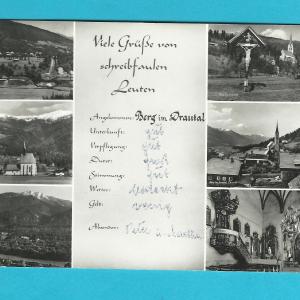 Viele Grüße von
schreibfaulen
Leuten
Angekommen: Berg im Drautal
Unterkunft: gut
Verpflegung: gut
Durst: groß
Stimmung: gut
Wetter:
Geld: wenig
Absender: